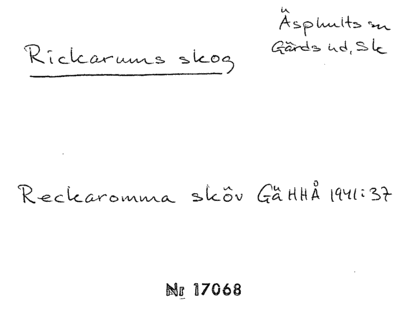 Äsphults sn
Rickarums skog
Gärds hd, Sk
Reckaromma skôv GäHHÅ 1941:37
Nr 17068